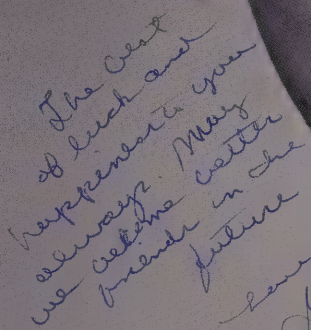 The best
of luck and
happiness to you
always. May
we become better
friends in the
future
Love